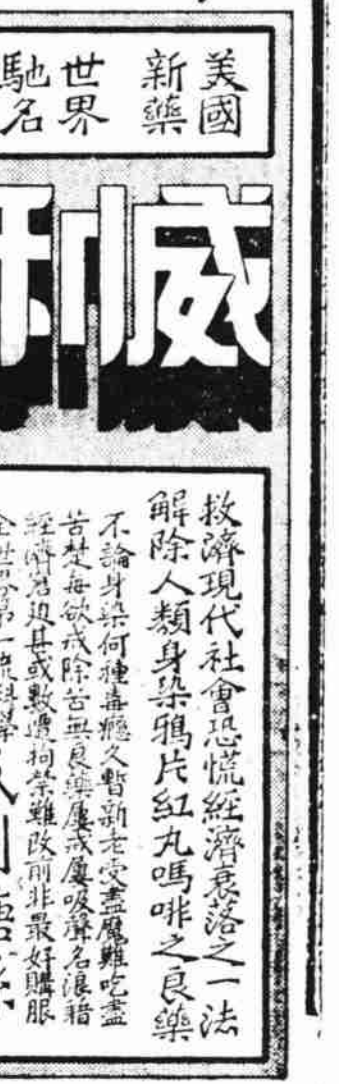 美國
新藥
世界
馳名
威利
救濟現代社會恐慌經濟衰落之一法
解除人類身染鴉片紅丸嗎啡之良藥
不論身染何種毒癮久暫新老受盡魔難吃盡
苦楚每欲戒除苦無良藥屢戒屢吸聲名浪藉
經濟窘迫甚或數遭拘禁難改前非最好購服
全世界第一流科學